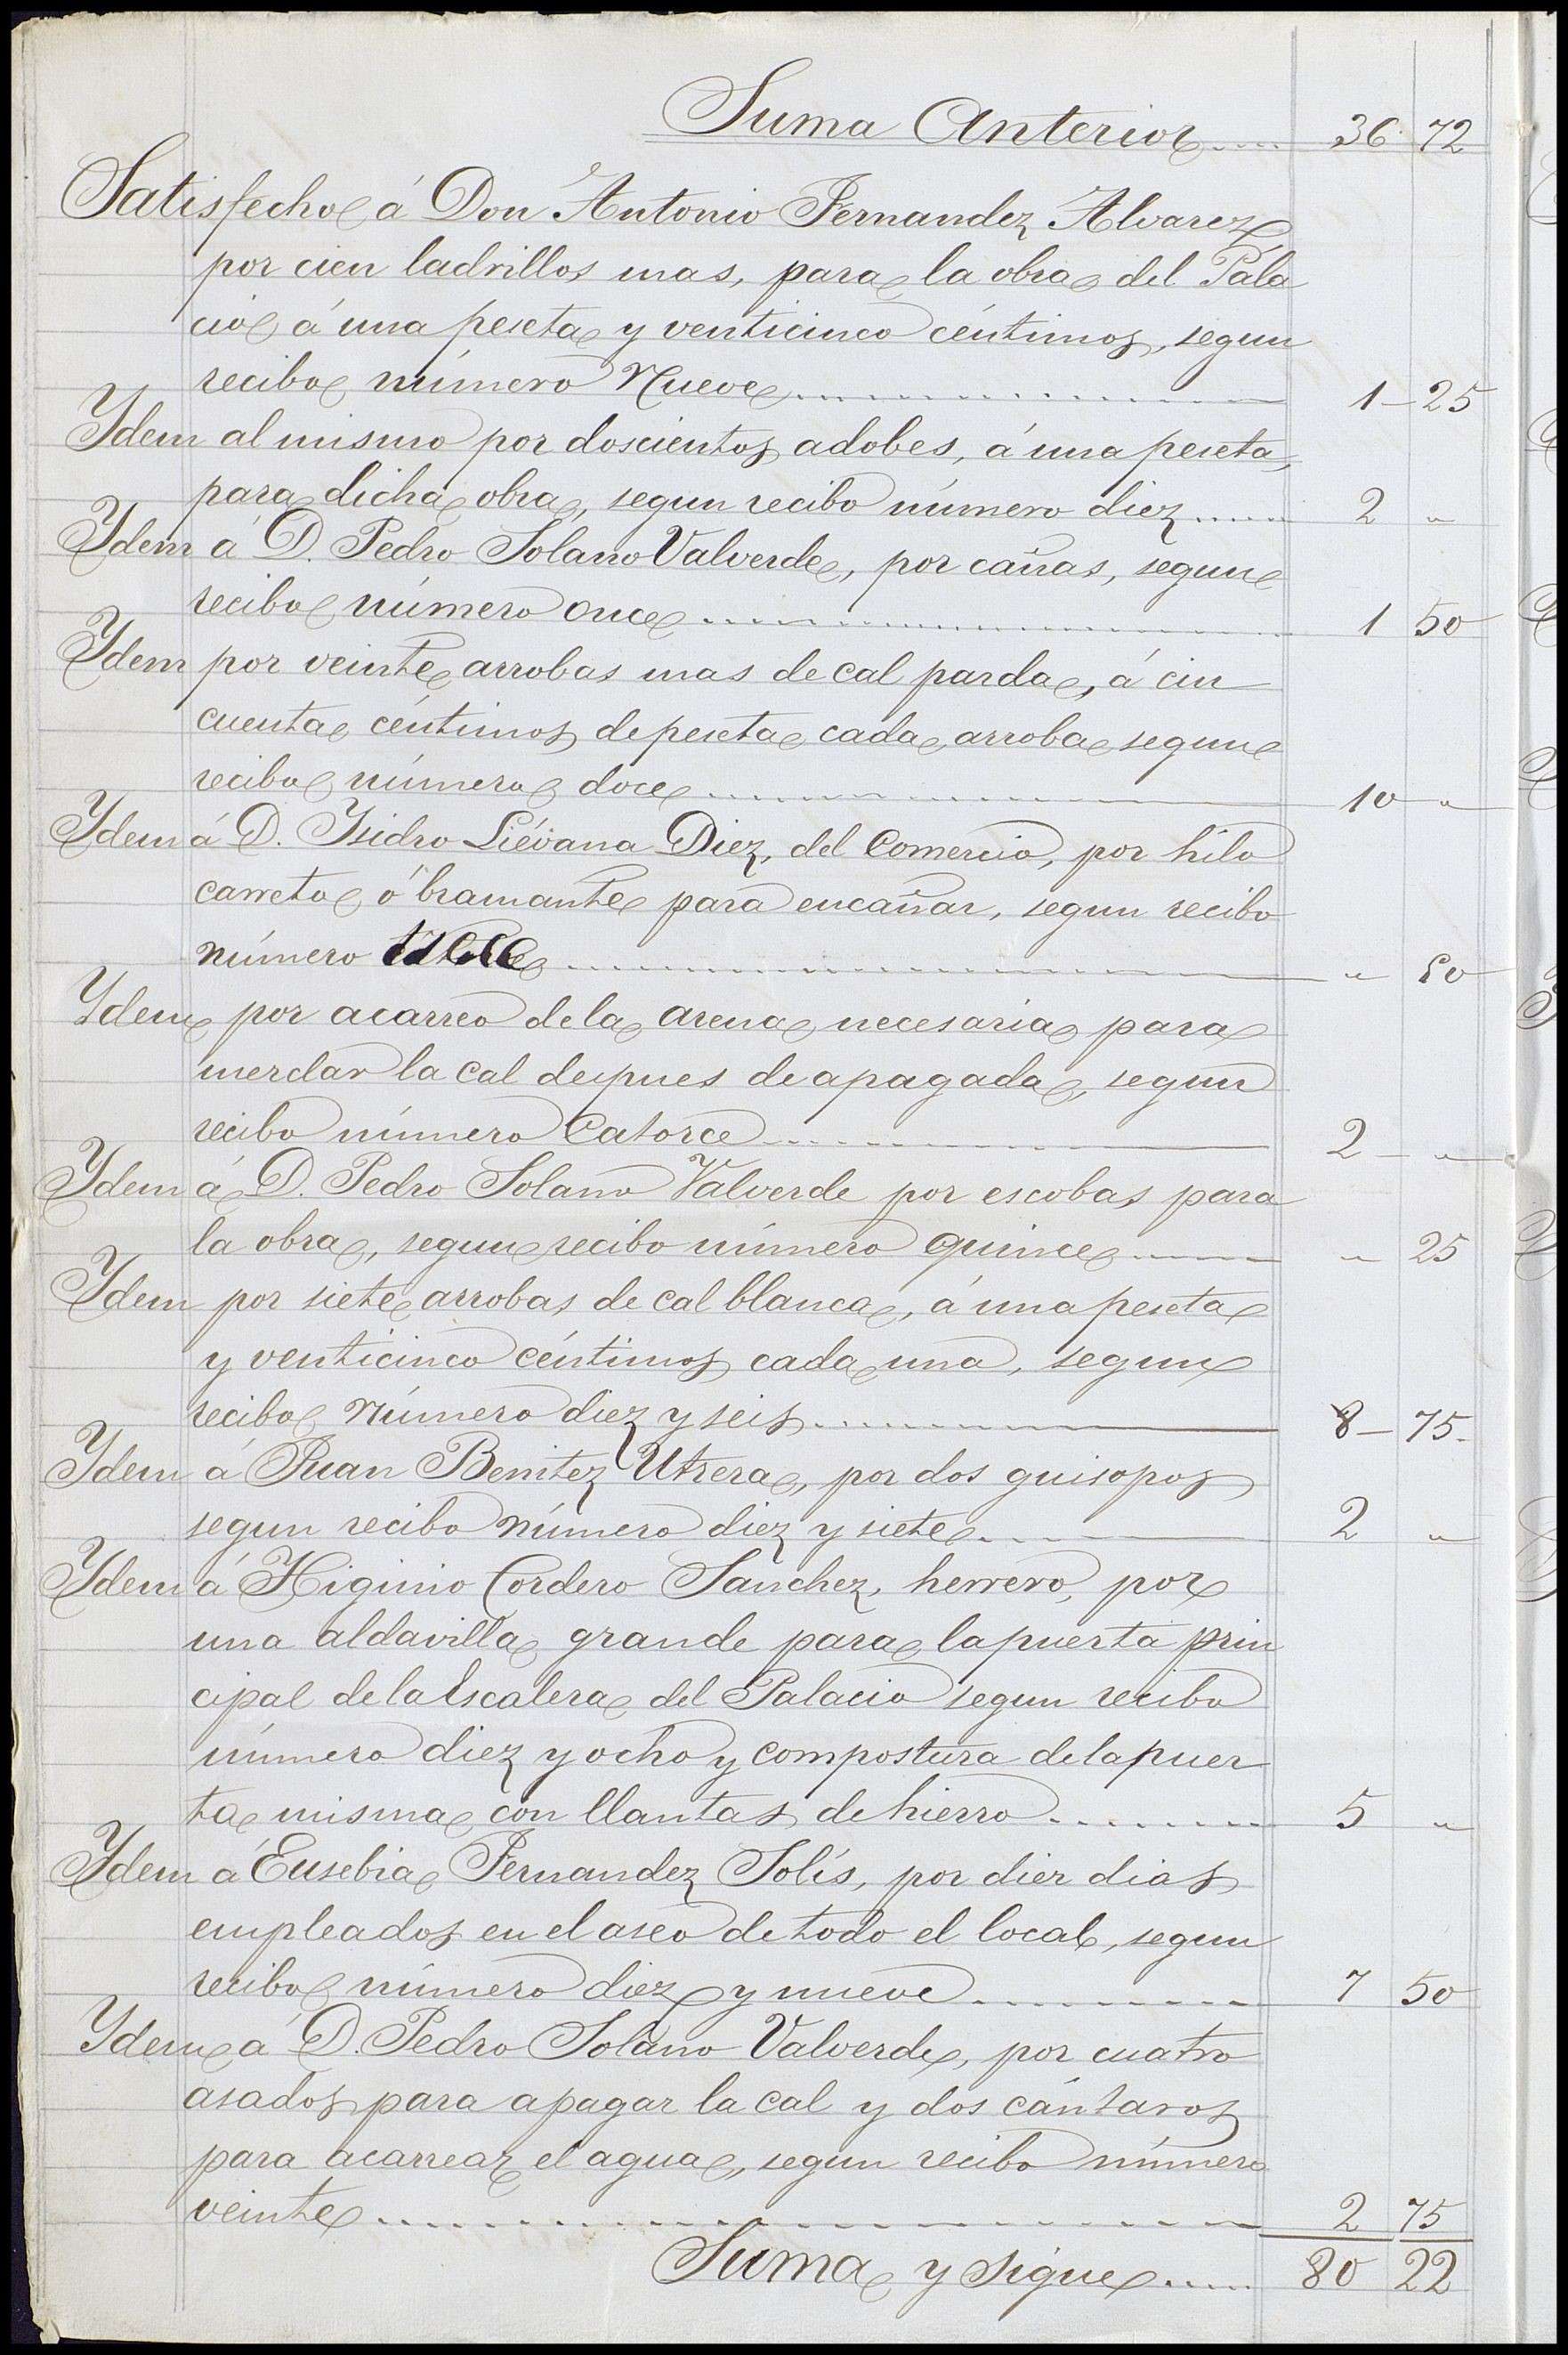 Suma Anterior.... 36 72
Satisfecho á Don Antonio Fernandez Alvarez
por cien ladrillos mas, para la obra del Pala
cio á una peseta y venticinco céntimos, segun
recibo número Nueve 1-25
Ydem al mismo por doscientos adobes, á una peseta,
para dicha obra, segun recibo número diez 2 "
Ydem á D. Pedro Solano Valverde, por cañas, segun
recibo número once 1 50
Ydem por veinte arrobas mas de cal parda, á cin
cuenta céntimos de peseta cada arroba segun
recibo número doce 10 "
Ydem á D. Ysidro Liévana Diez, del Comercio, por hilo
carreto ó bramante para encañar, segun recibo
número trece " 50
Ydem por acarreo de la arena necesaria para
merclar la cal despues de apagada, segun
recibo número Catorce 2 - "
Ydem á D. Pedro Solano Valverde por escobas para
la obra, segun recibo número quince " 25
Ydem por siete arrobas de cal blanca, á una peseta
y venticinco céntimos cada una, segun
recibo número diez y seis 8-75-
Ydem á Juan Benitez Utrera, por dos guisopos
segun recibo número diez y siete 2 "
Ydem á Higinio Cordero Sanchez, herrero, por
una aldavilla grande para la puerta prin
cipal de la Escalera del Palacio segun recibo
número diez y ocho y compostura de la puer
ta misma con llantas de hierro 5 "
Ydem á Eusebia Fernandez Solís, por dier dias
empleados en el aseo de todo el local, segun
recibo número diez y nueve 7 50
Ydem á D. Pedro Solano Valverde, por cuatro
asados para apagar la cal y dos cántaros
para acarrear el agua, segun recibo número
veinte 2 75
Suma y sigue.... 80 22